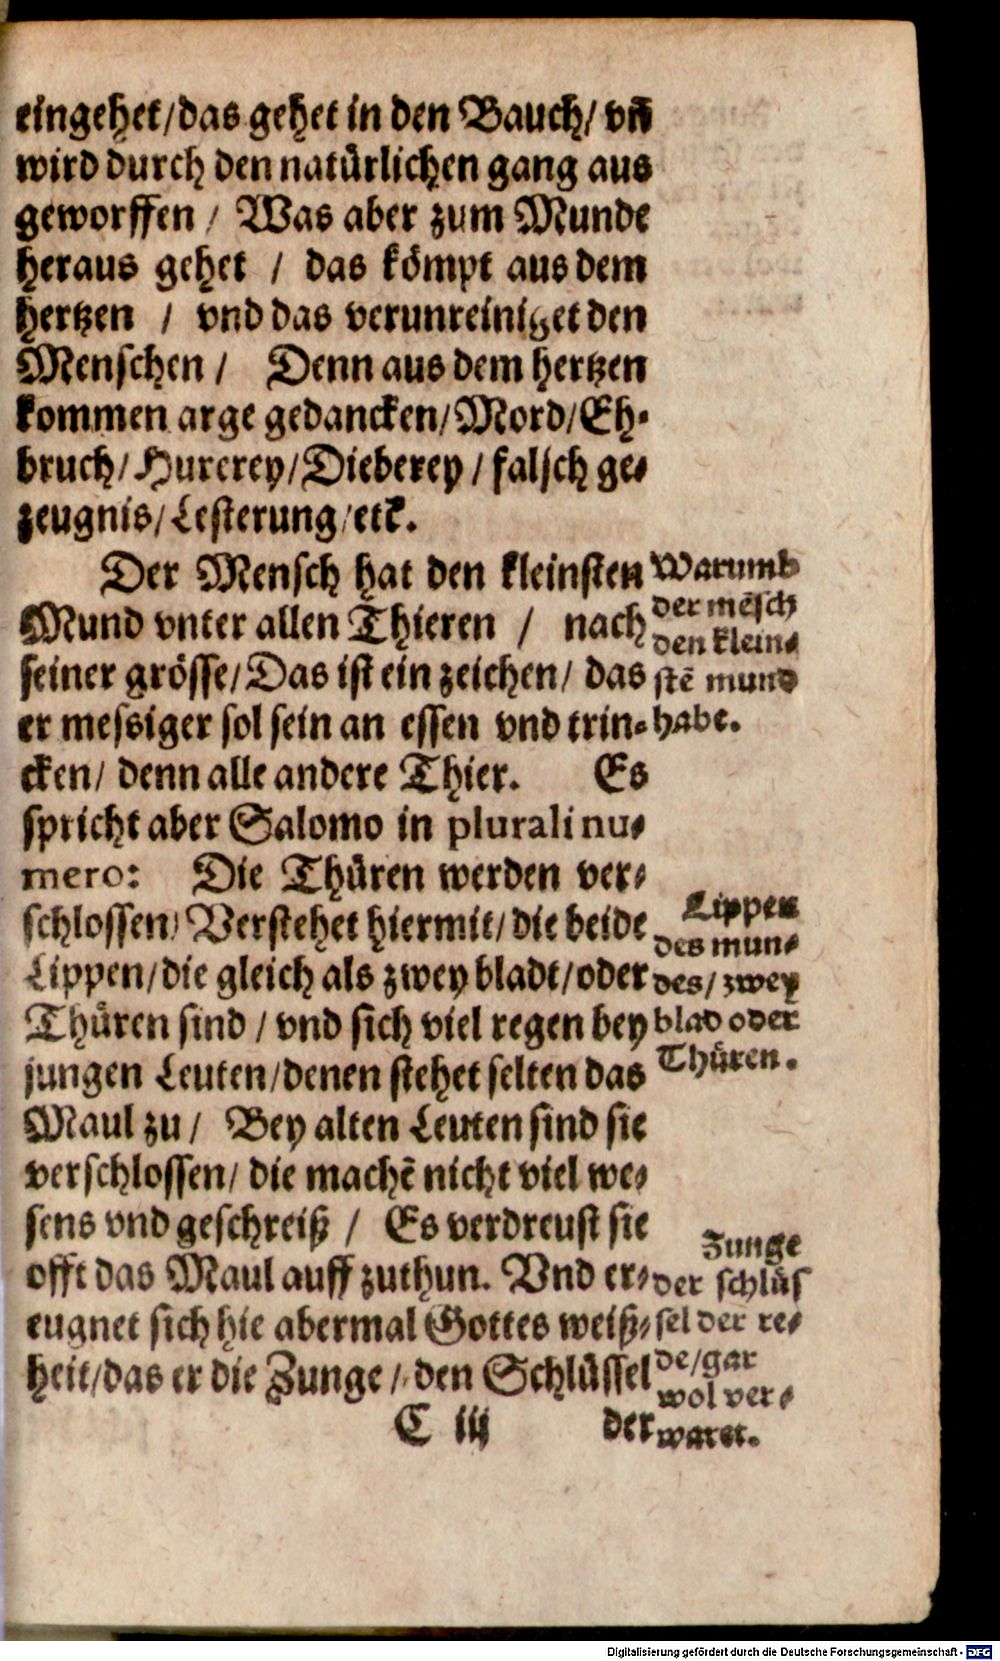 eingehet/das gehet in den Bauch/ vñ
wird durch den natürlichen gang aus
geworffen / Was aber zum Munde
heraus gehet / das kömpt aus dem
hertzen / vnd das verunreiniget den
Menschen / Denn aus dem hertzen
kommen arge gedancken/Mord/Eh-
bruch/Hurerey/Dieberey/falsch ge-
zeugnis/Lesterung/etc.
Der Mensch hat den kleinsten
Mund vnter allen Thieren / nach
seiner grösse/Das ist ein zeichen/ das
er messiger sol sein an essen vnd trin-
cken/ denn alle andere Thier. Es
spricht aber Salomo in plurali nu-
mero: Die Thüren werden ver-
schlossen/ Verstehet hiermit/die beide
Lippen/die gleich als zwey bladt/oder
Thüren sind / vnd sich viel regen bey
jungen Leuten/denen stehet selten das
Maul zu / Bey alten Leuten sind sie
verschlossen/ die machē nicht viel we-
sens vnd geschreiß / Es verdreust sie
offt das Maul auff zuthun. Vnd er-
eugnet sich hie abermal Gottes weiß-
heit/das er die Zunge / den Schlüssel
C iij der
Warumb
der mēsch
den klein-
stē mund
habe.
Lippen
des mun-
des/ zwey
blad oder
Thüren.
Zunge
der schlüs
sel der re-
de/gar
wol ver-
waret.
Digitalisierung gefördert durch die Deutsche Forschungsgemeinschaft - DFG